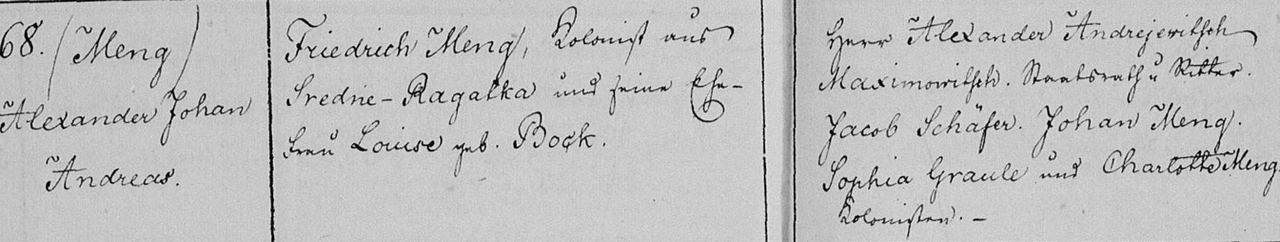 68. (Meng)
Alexander Johan
Andreas.
Friedrich Meng, Kolonist aus
Sredne-Ragatka und seine Ehe-
frau Louise geb. Bock.
Herr Alexander Andrejewitsch
Maximowitsch. Staatsrath u Ritter.
Jacob Schäfer. Johan Meng.
Sophia Graule und Charlotte Meng.
Kolonisten. –